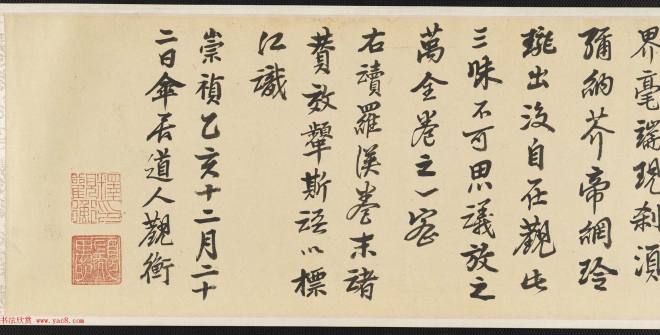 界毫端現刹須
彌納芥帝網玲
瓏出沒自在觀此
三昧不可思議放之
萬全卷之一宻
右讀羅漢卷末諸
賛效顰斯語以標
江識
崇禎乙亥十二月二十
二日傘居道人觀衡
书法欣赏 www.yac8.com